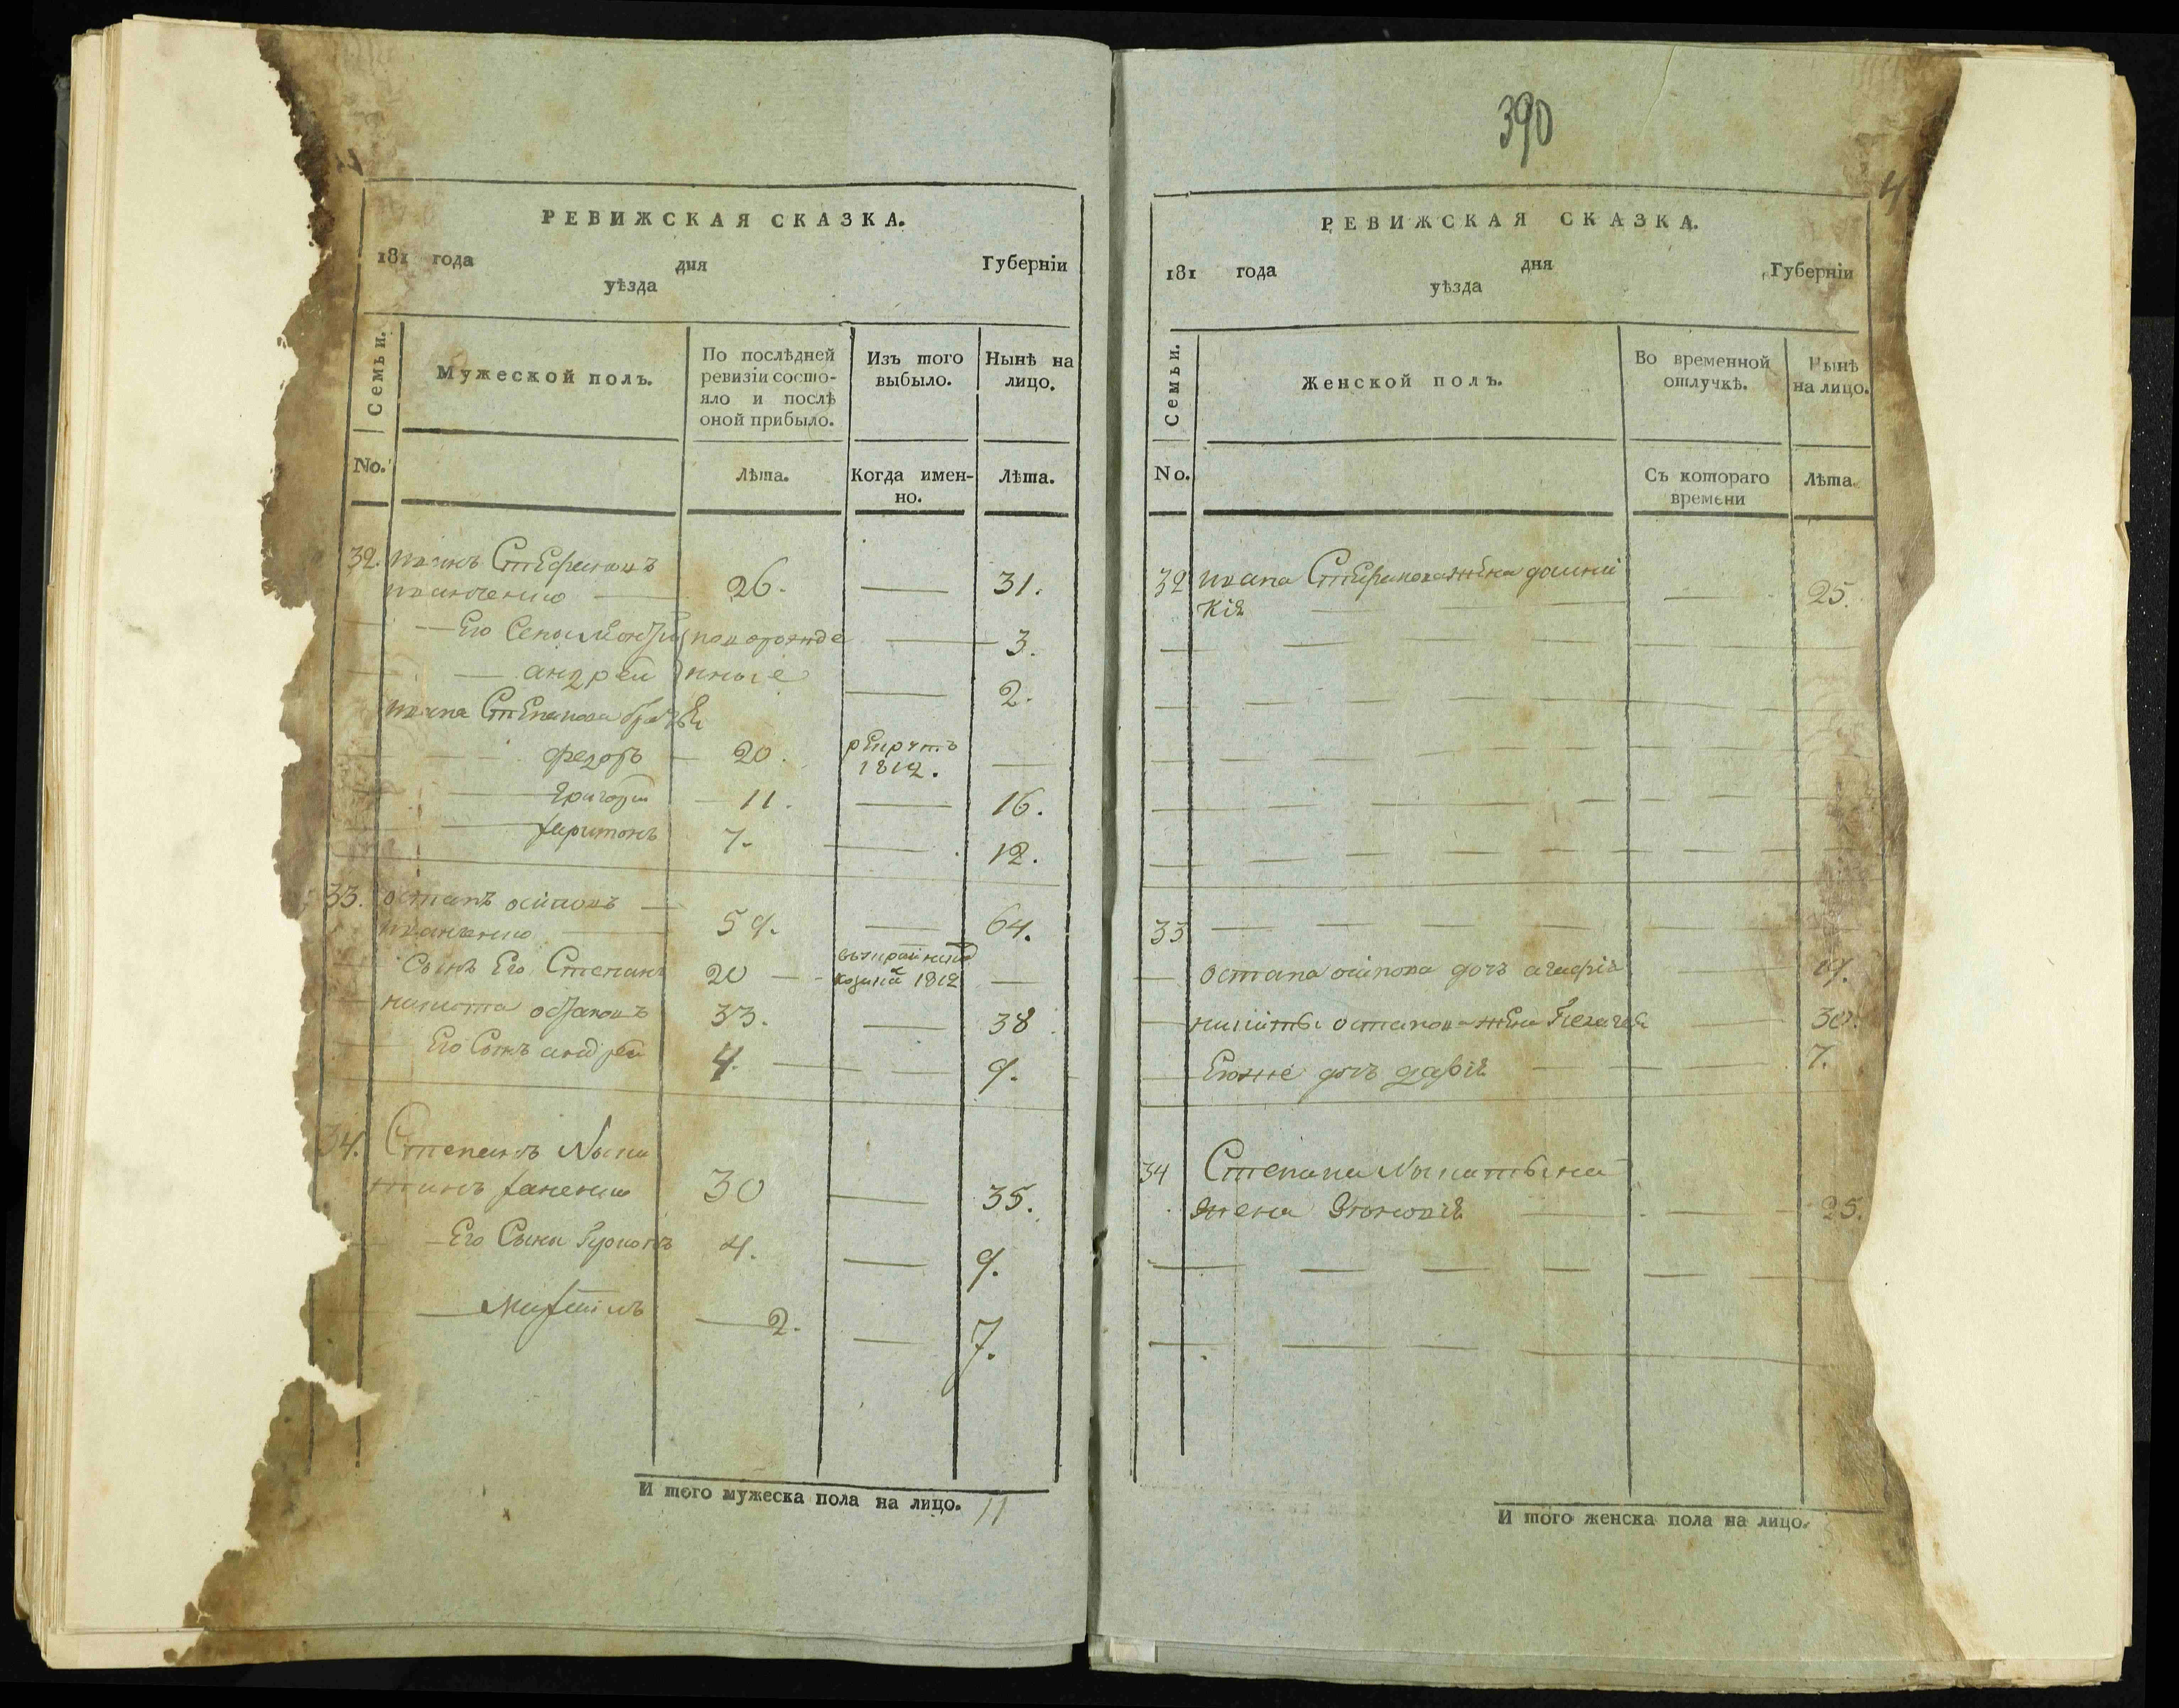 390
4
РЕВИЖСКАЯ СКАЗКА.
181 года дня Губерніи
уѣзда
Семьи.
Мужеской полъ.
По послѣдней
ревизіи состо-
яло и послѣ
оной прибыло.
Изъ того
выбыло.
Нынѣ на
лицо.
No.
Лѣта.
Когда имен-
но.
Лѣта.
32. иванъ Стефановъ
иванченко 26. 31.
Его Сены новорожде 3.
андрей нные 2.
ивана Степанова братья
федоръ 20. рекрутъ
1812.
григорій 11. 16.
харитонъ 7. 12.
33. остапъ осиповъ
иванченко 59. 64.
Сынъ Его Степанъ 20 1812
никита остаповъ 33. 38
Его Сынъ андрей 4. 9.
34. Степанъ Ники
тинъ 30 35.
Его Сыни 4. 9.
Михаилъ 2. 7.
И того мужеска пола на лицо. 11
РЕВИЖСКАЯ СКАЗКА.
181 года дня Губерніи
уѣзда
Семьи.
Женской полъ.
Во временной
отлучкѣ.
Нынѣ
на лицо.
No.
Съ котораго
времени
Лѣта.
32 ивана Стефанова жена домни
кія 25.
33
остапа осипова дочъ агафія 19.
никиты остапова жена Пелагея 30.
Егоже дочъ дарія 7.
34 Степана Никитына
жена 25.
И того женска пола на лицо.